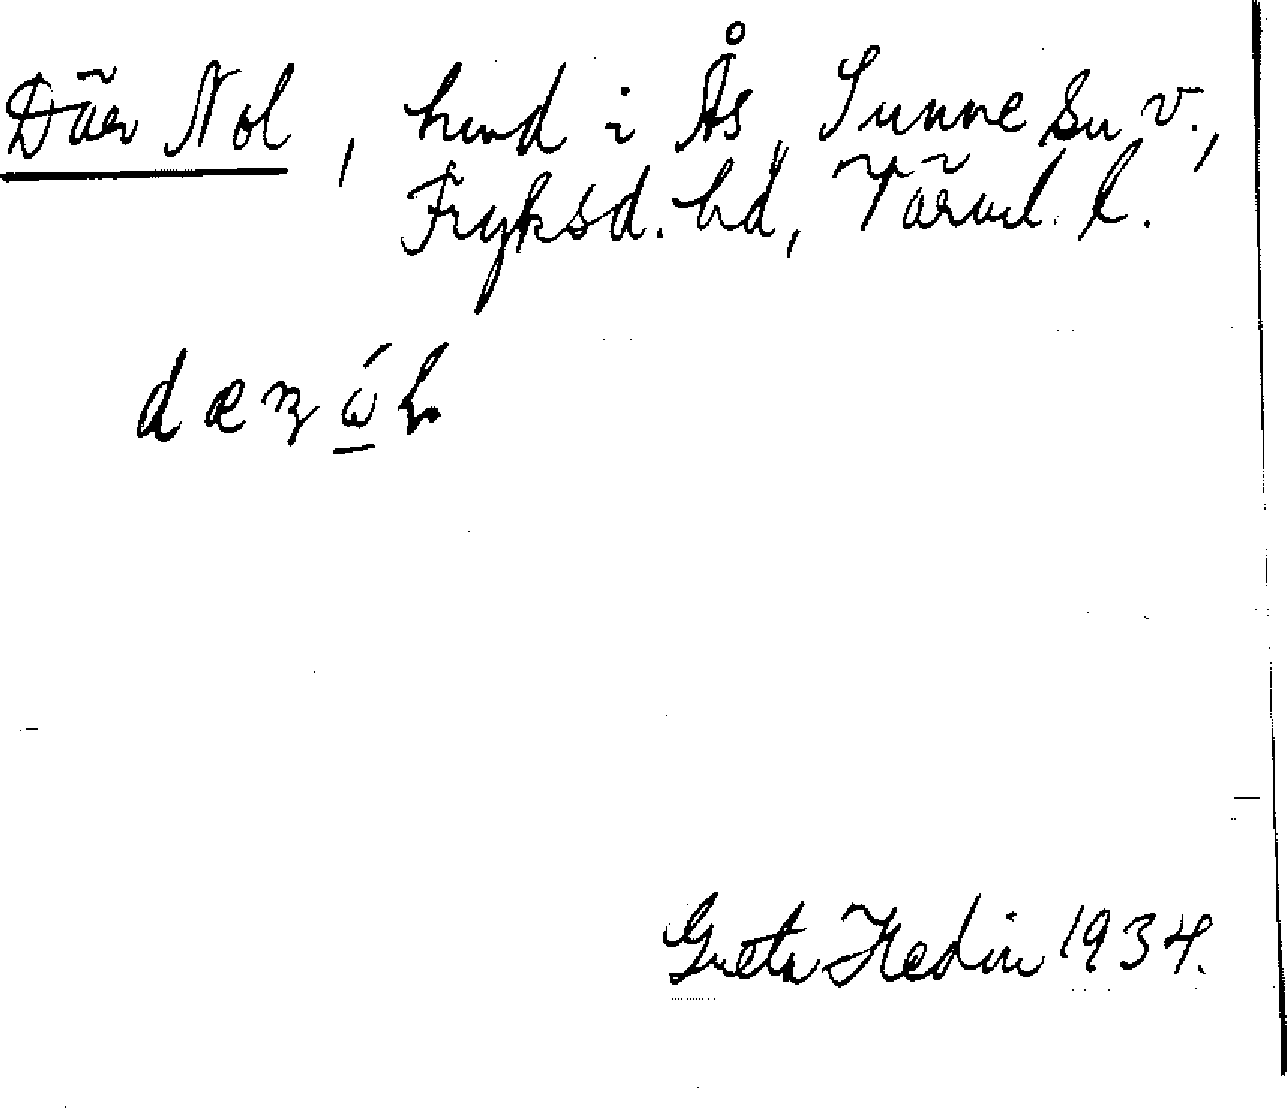 Där Nol, hemd i Ås, Sunne sn v.,
Fryksd. hd, Värml. l.
Greta Hedin 1934.